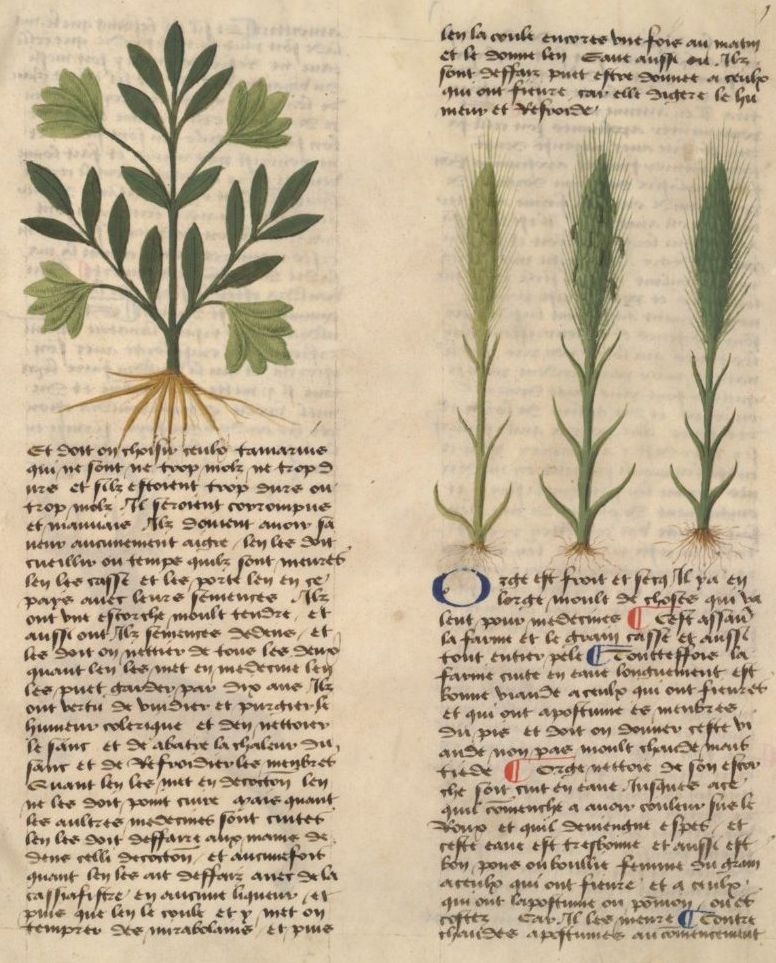 Et doit on choisir ceulx tamarins
qui ne sont ne trop molz ne trop d
urs et silz estoient trop durs ou
trop molz Ilz seroient corrompus
et mauvais Ilz doivent avoir sa
veur aucunement aigre / len les doit
cueillir ou temps quilz sont meures
len les casse et les porte len en ce
pays avec leurs semences Ilz
ont une escorche moult tendre / et
aussi ont Ilz semences dedens / et
les doit on nettier de tous les deux
quant len les met en medecine len
les puet garder par dix ans Ilz
ont vertu de vuidier et purgier le
humeur colerique et den nettoier
le sanc et de abatre la chaleur du
sanc et de Refroidier les menbres
Quant len les met en decoction len
ne les doit point cuire Mais quant
les aultres medecines sont cuites
len les doit deffaire aux mains de
dens celli decoction / et aucunefois
quant len les ait deffais avec de la
cassiafistre en aucune liqueur / et
puis que len le coule et y met on
temprer des mirabolans / et puis
len la coule encores une fois au matin
et le donne len Eaue aussi ou Ilz
sont deffaiz puet estre donnee a ceulx
qui ont fievre car elle digere le hu
meur et Refroide
Orge est froit et secq Il y a en
lorge moult de choses qui va
lent pour medecines ¶ Cest assavoir
la farine et le grain casse et aussi
tout entier pele ¶ Toutteffois la
farine cuite en eaue longuement est
bonne viande a ceulx qui ont fievres
et qui ont apostume es menbres
du pis et doit on donner ceste vi
ande non pas moult chaude mais
tiede ¶ Orge nettoie de son escor
che soit cuit en eaue Jusques a ce
quil comenche a avoir couleur sus le
Roux et quil deviengne espes / et
ceste eaue est tresbonne et aussi est
bon pous ou boullie
a ceulx qui ont fievre et a ceulx
qui ont lapostume ou pomon / ou es
costez Car Il les meure ¶ Contre
chaudes apostumes au comencement